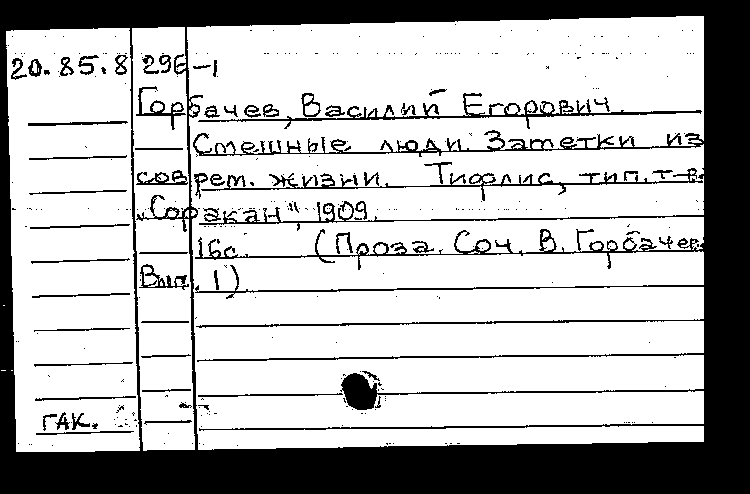 20.85.8 296-1
Горбачев, Василий Егорович.
Смешные люди. Заметки из
соврем. жизни. Тифлис, тип. т-ва
„Соракан", 1909.
16с. (Проза. Соч. В. Горбачева
Вып. 1)
ГАК.